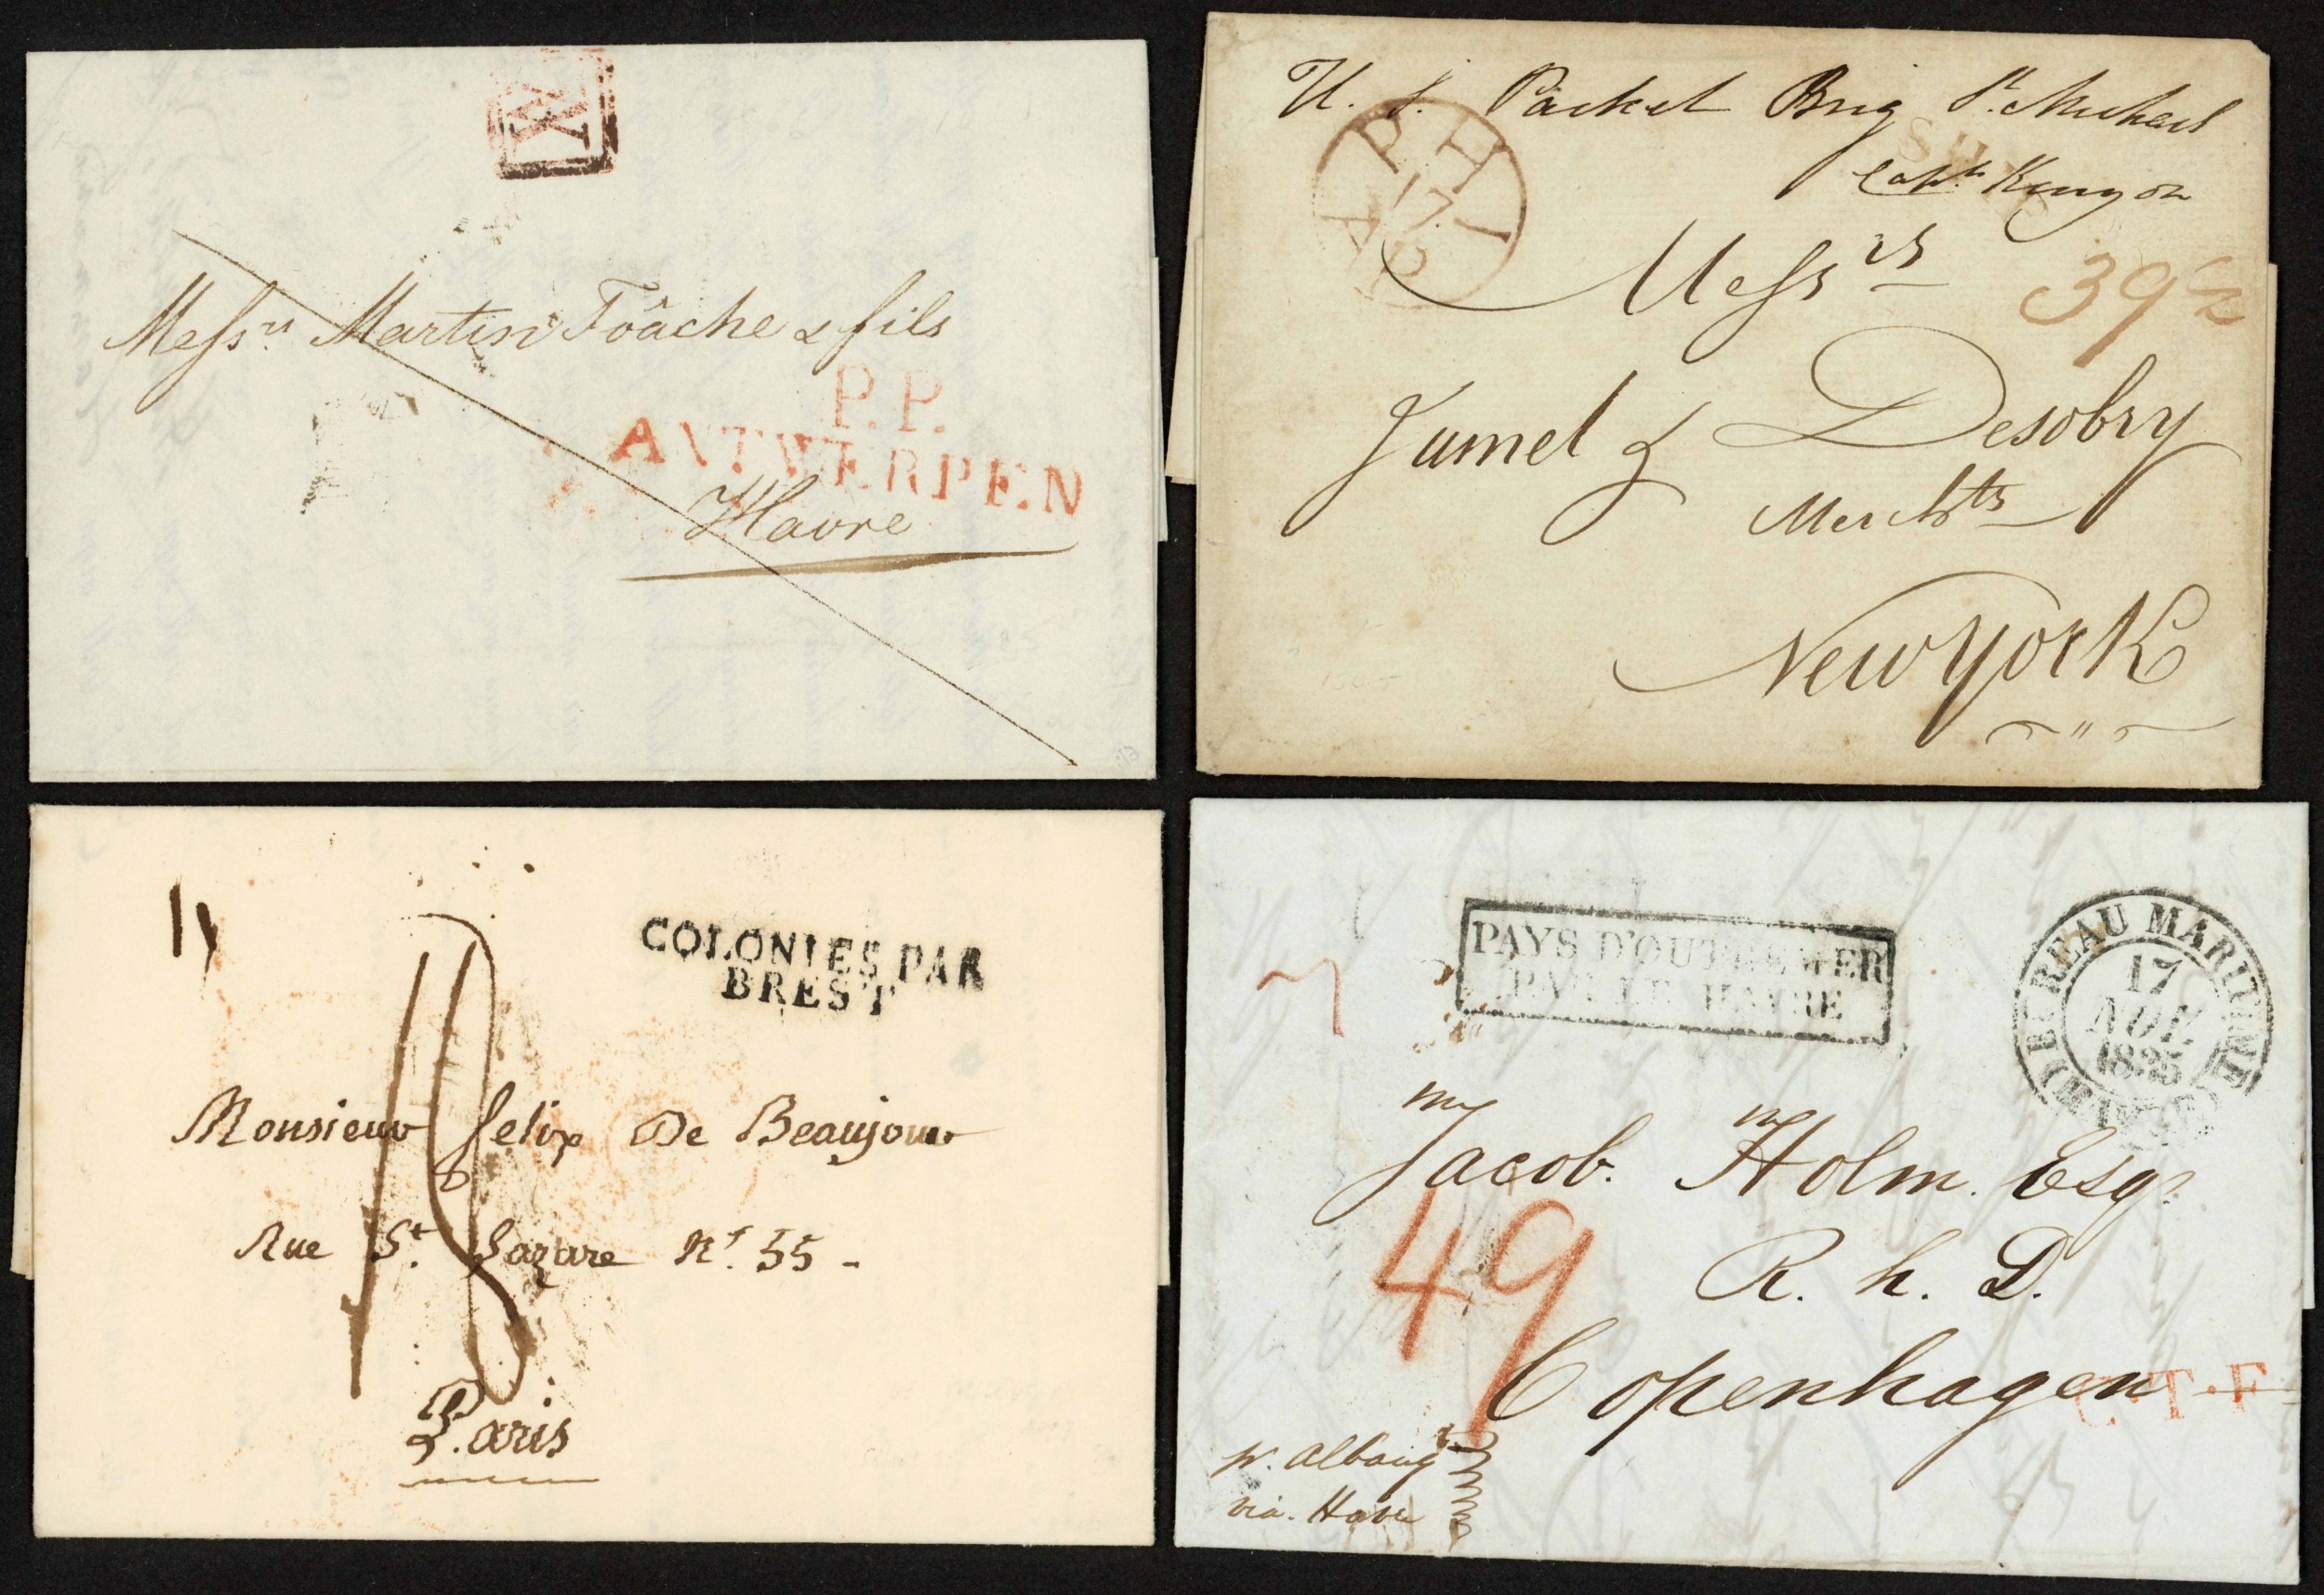 Messrs Martin Foâche & fils
P.P.
ANTWERPEN
Havre
U. S. Packet Brig St. Michael
SHIP
Captn Kenyon
PHI
17
AP
Messrs
39½
Jumel & Desobry
Merchts
New York
COLONIES PAR
BREST
18
Monsieur Felix De Beaujour
Rue St. Lazare No. 55 -
Paris
PAYS D'OUTREMER
PAR LE HAVRE
BUREAU MARITIME
17
NOV.
1835
Jacob. Holm. Esqr.
49
R. h. D.
Copenhagen
C.T.F
pr. Albany
via. Havre